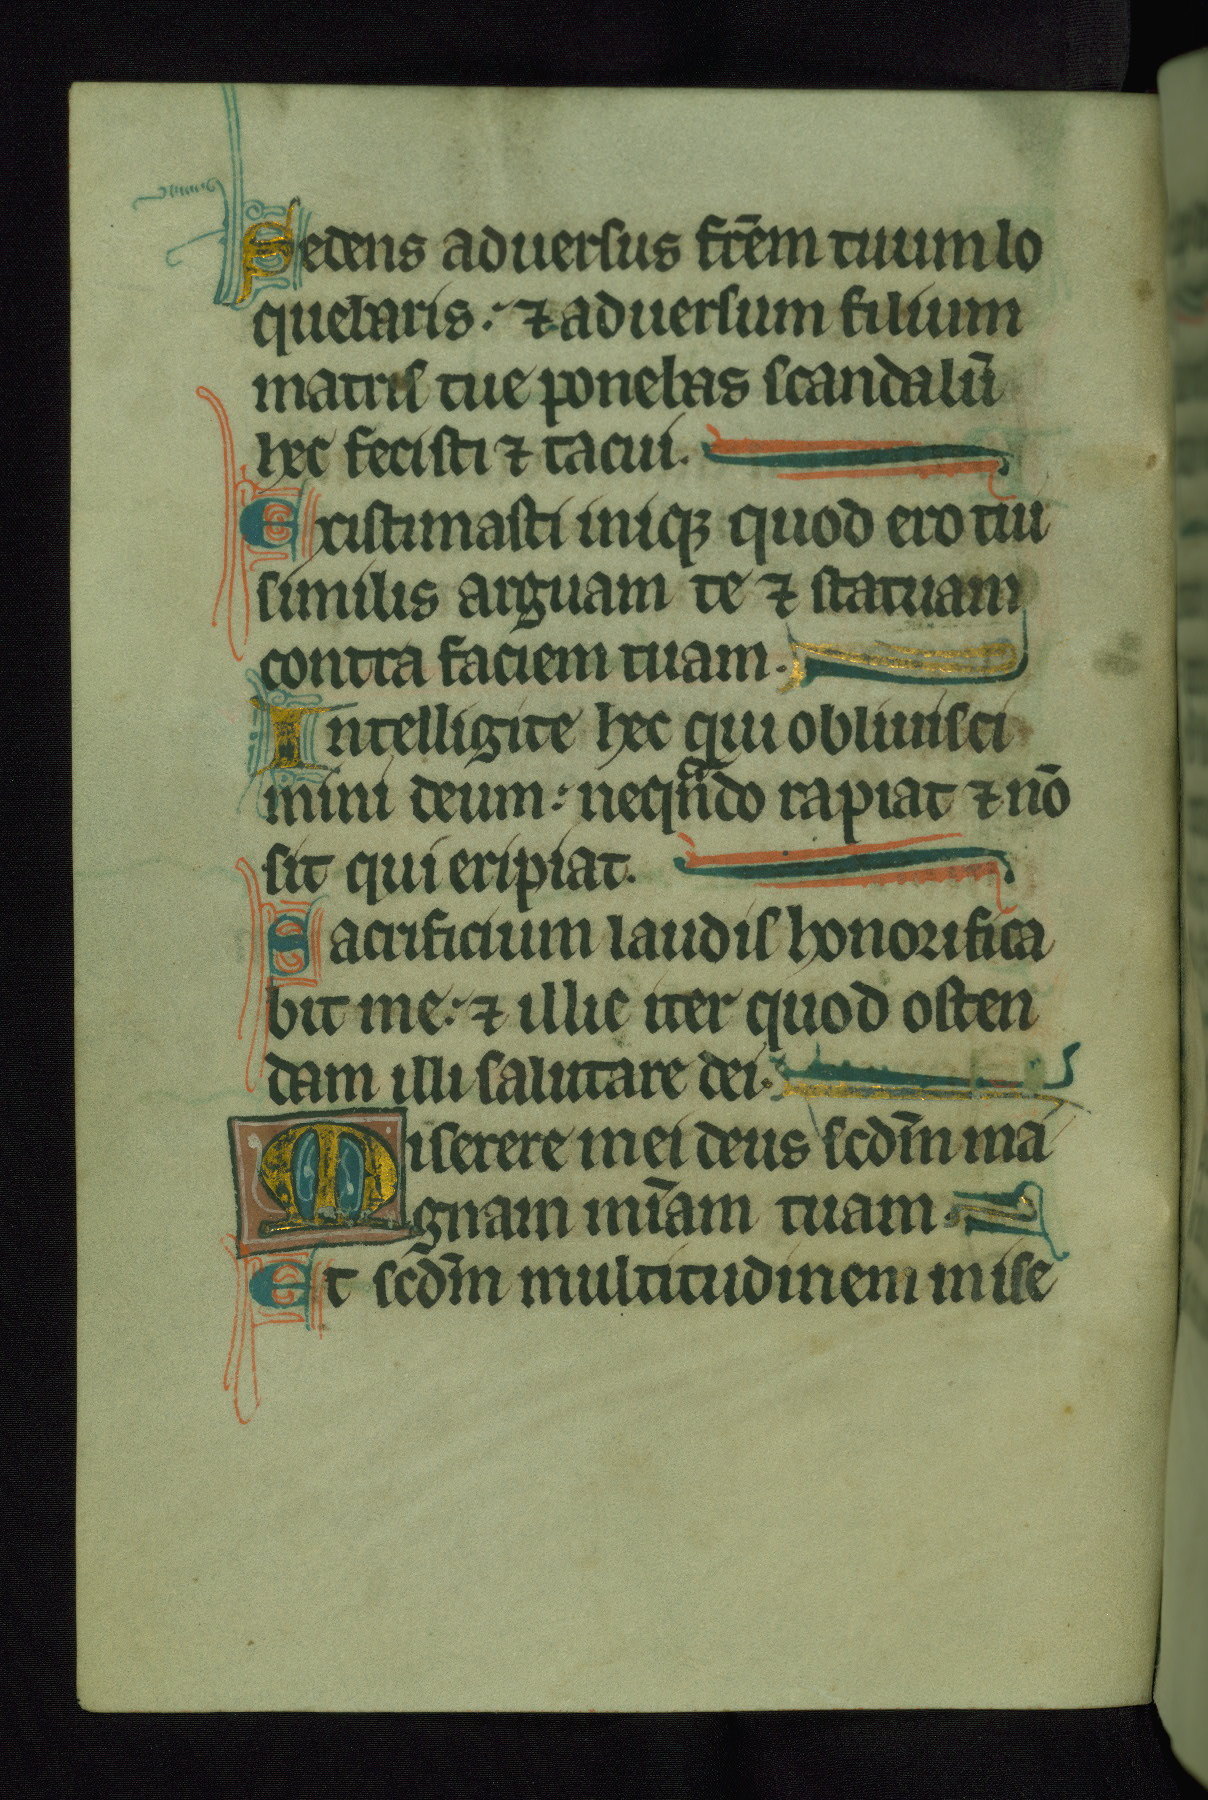 Sedens aduersus fr̄em tuum lo
quebaris: ⁊ aduersum filium
matris tue ponebas scandalū
hec fecisti ⁊ tacui.
Existimasti iniqꝫ quod ero tui
similis arguam te ⁊ statuam
contra faciem tuam.
Intelligite hec qui obliuisci
mini deum: neqn̄do rapiat ⁊ nō
sit qui eripiat.
Sacrificium laudis honorifica
bit me: ⁊ illic iter quod osten
dam illi salutare dei.
Miserere mei deus scd̄m ma
gnam mīam tuam.
Et scd̄m multitudinem mise